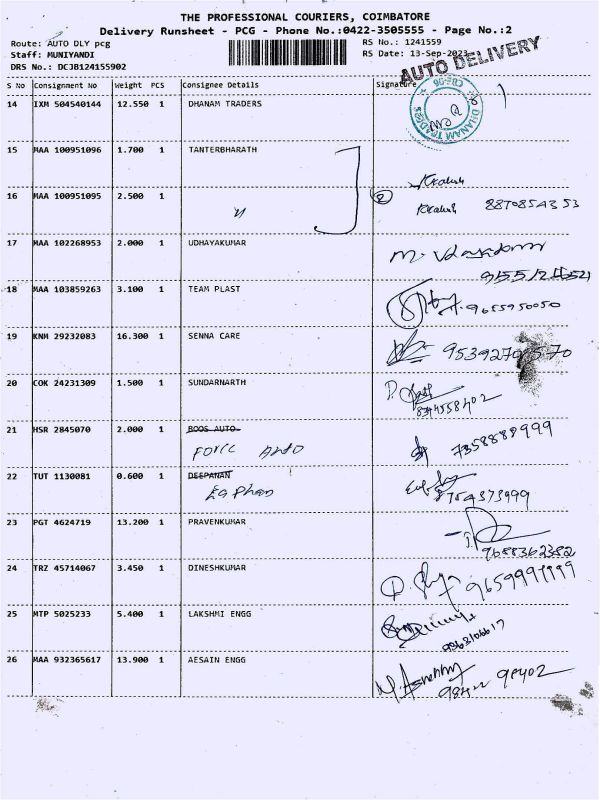 THE PROFESSIONAL COURIERS, COIMBATORE
Delivery Runsheet - PCG - Phone No.:0422-3505555 - Page No.:2
Route: AUTO DLY pcg RS No.: 1241559
Staff: MUNIYANDI RS Date: 13-Sep-2023
DRS No.: DCJB124155902
AUTO DELIVERY
S No Consignment No Weight PCS Consignee Details Signature
14 IXM 504540144 12.550 1 DHANAM TRADERS
15 MAA 100951096 1.700 1 TANTERBHARATH
16 MAA 100951095 2.500 1 〃 2 8870854353
17 MAA 102268953 2.000 1 UDHAYAKUMAR
18 MAA 103859263 3.100 1 TEAM PLAST 9655950050
19 KNM 29232083 16.300 1 SENNA CARE
20 COK 24231309 1.500 1 SUNDARNARTH
8344558402
21 HSR 2845070 2.000 1 BOOS AUTO 7358888999
FORCE AUTO
22 TUT 1130081 0.600 1 DEEPANAN
8754373999
23 PGT 4624719 13.200 1 PRAVENKUMAR
9688362382
24 TRZ 45714067 3.450 1 DINESHKUMAR
25 MTP 5025233 5.400 1 LAKSHMI ENGG
26 MAA 932365617 13.900 1 AESAIN ENGG
98422 98402